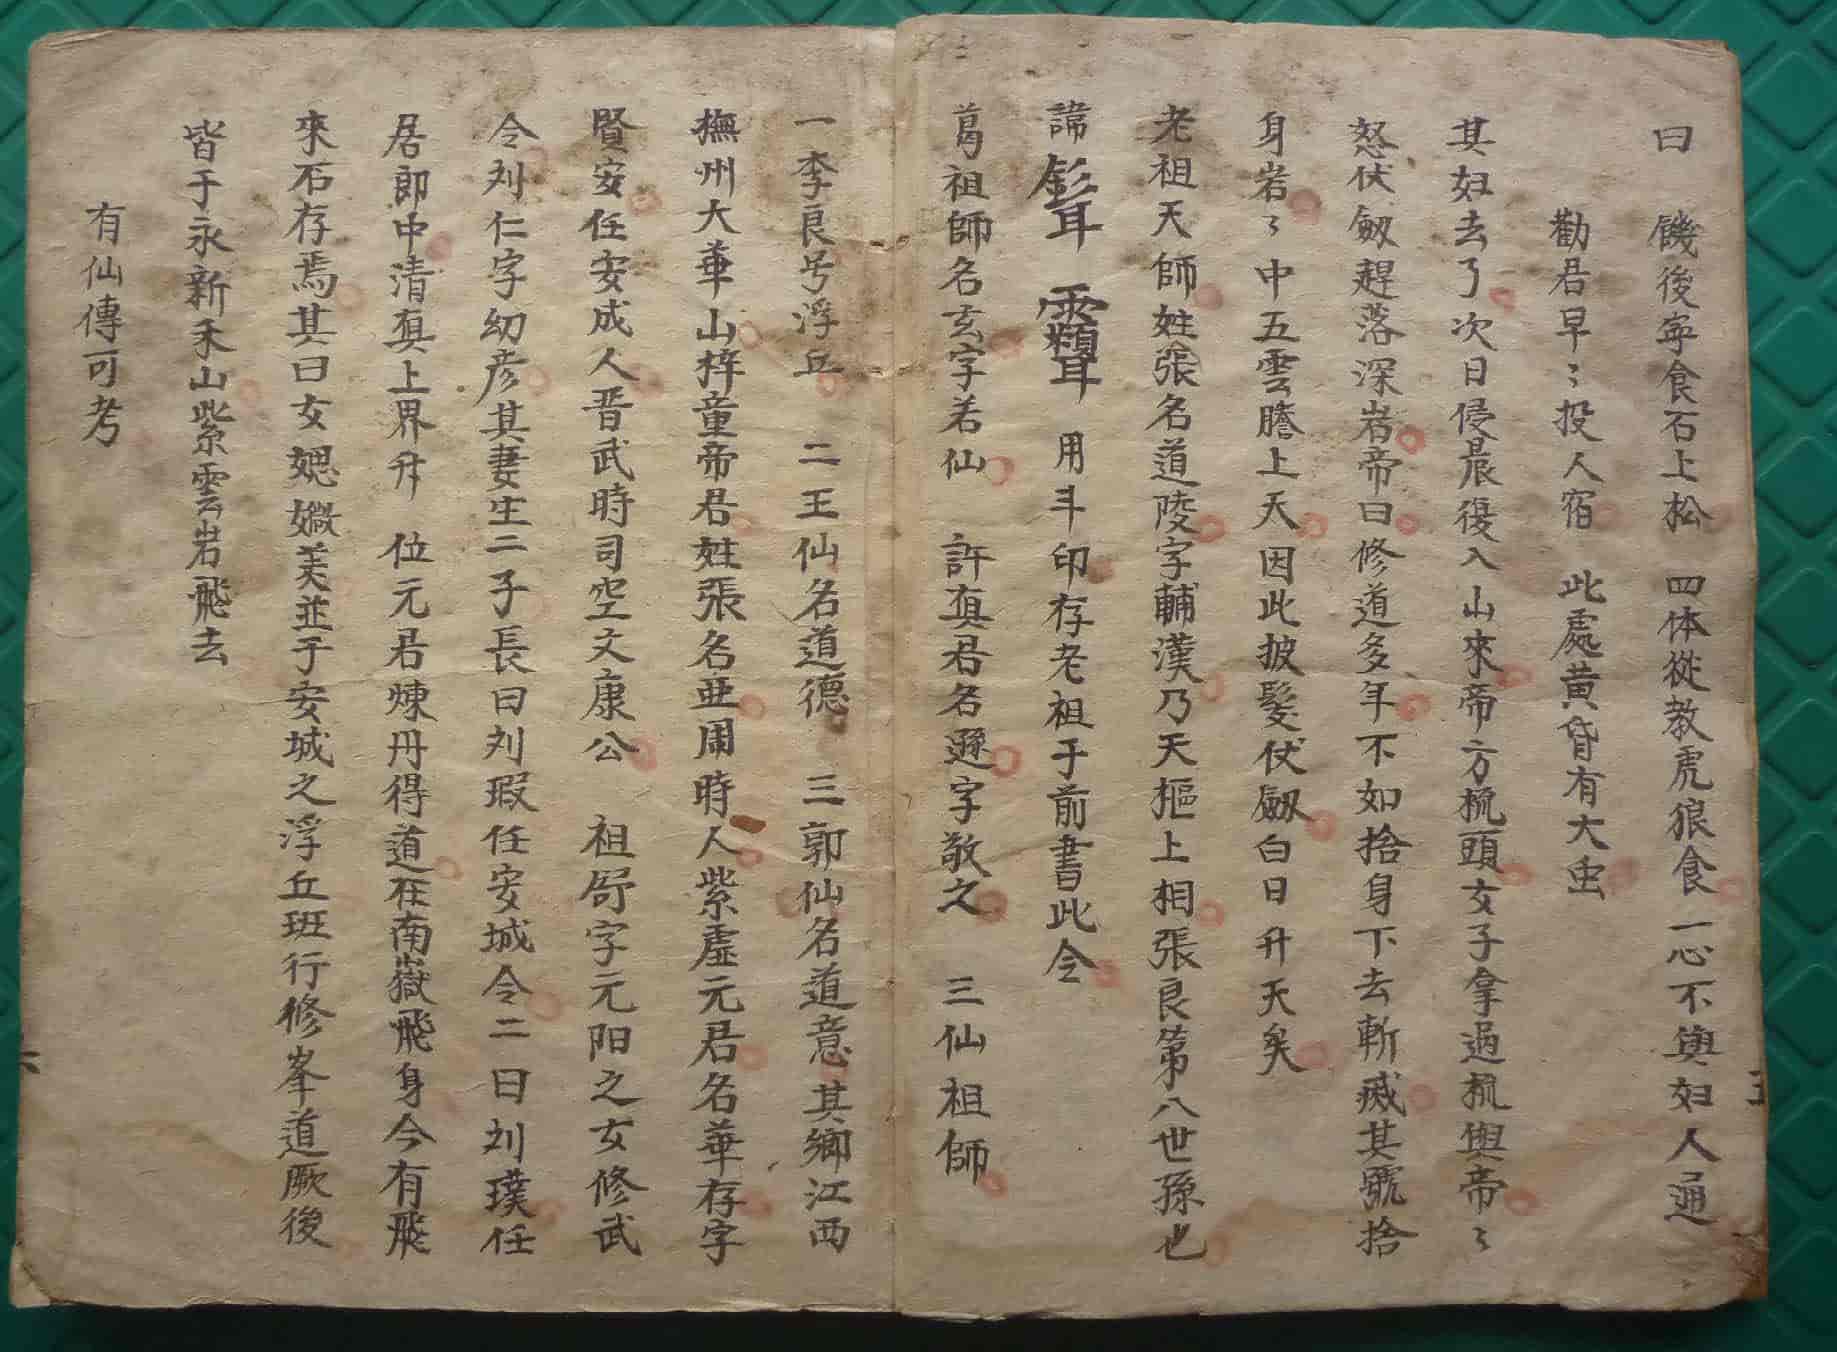 曰　饑後寧食石上松　四体從教虎狼食一心不與妇人通
勸君早〻投人宿　此處黄昏有大虫
其妇去了次日侵晨復入山來帝方梳頭女子拿過梳與帝〻
怒伏劔趕落深岩帝曰修道多年不如捨身下去斬滅其號捨
身岩〻中五雲謄上天因此披髮伏劔白日升天矣
老祖天師姓張名道陵字輔漢乃天樞上相張良第八世孫也
諱　用斗印存老祖于前書此令
葛祖師名玄字若仙　許真君名遜字敬之　三仙祖師
一李良号浮丘　二王仙名道德　三郭仙名道意其鄉江西
撫州大華山梓童帝君姓張名亜周時人紫虛元君名華存字
賢安任安成人晋武時司空文康公　祖舒字元阳之女修武
令刘仁字幼彦其妻生二子長曰刘瑕任安城令二曰刘璞任
居郎中清真上界升　位元君煉丹得道在南嶽飛身今有飛
來石存焉其曰女媤媺美並于安城之浮丘班行修峯道厥後
皆于永新禾山紫雲岩飛去
有仙傳可考
六